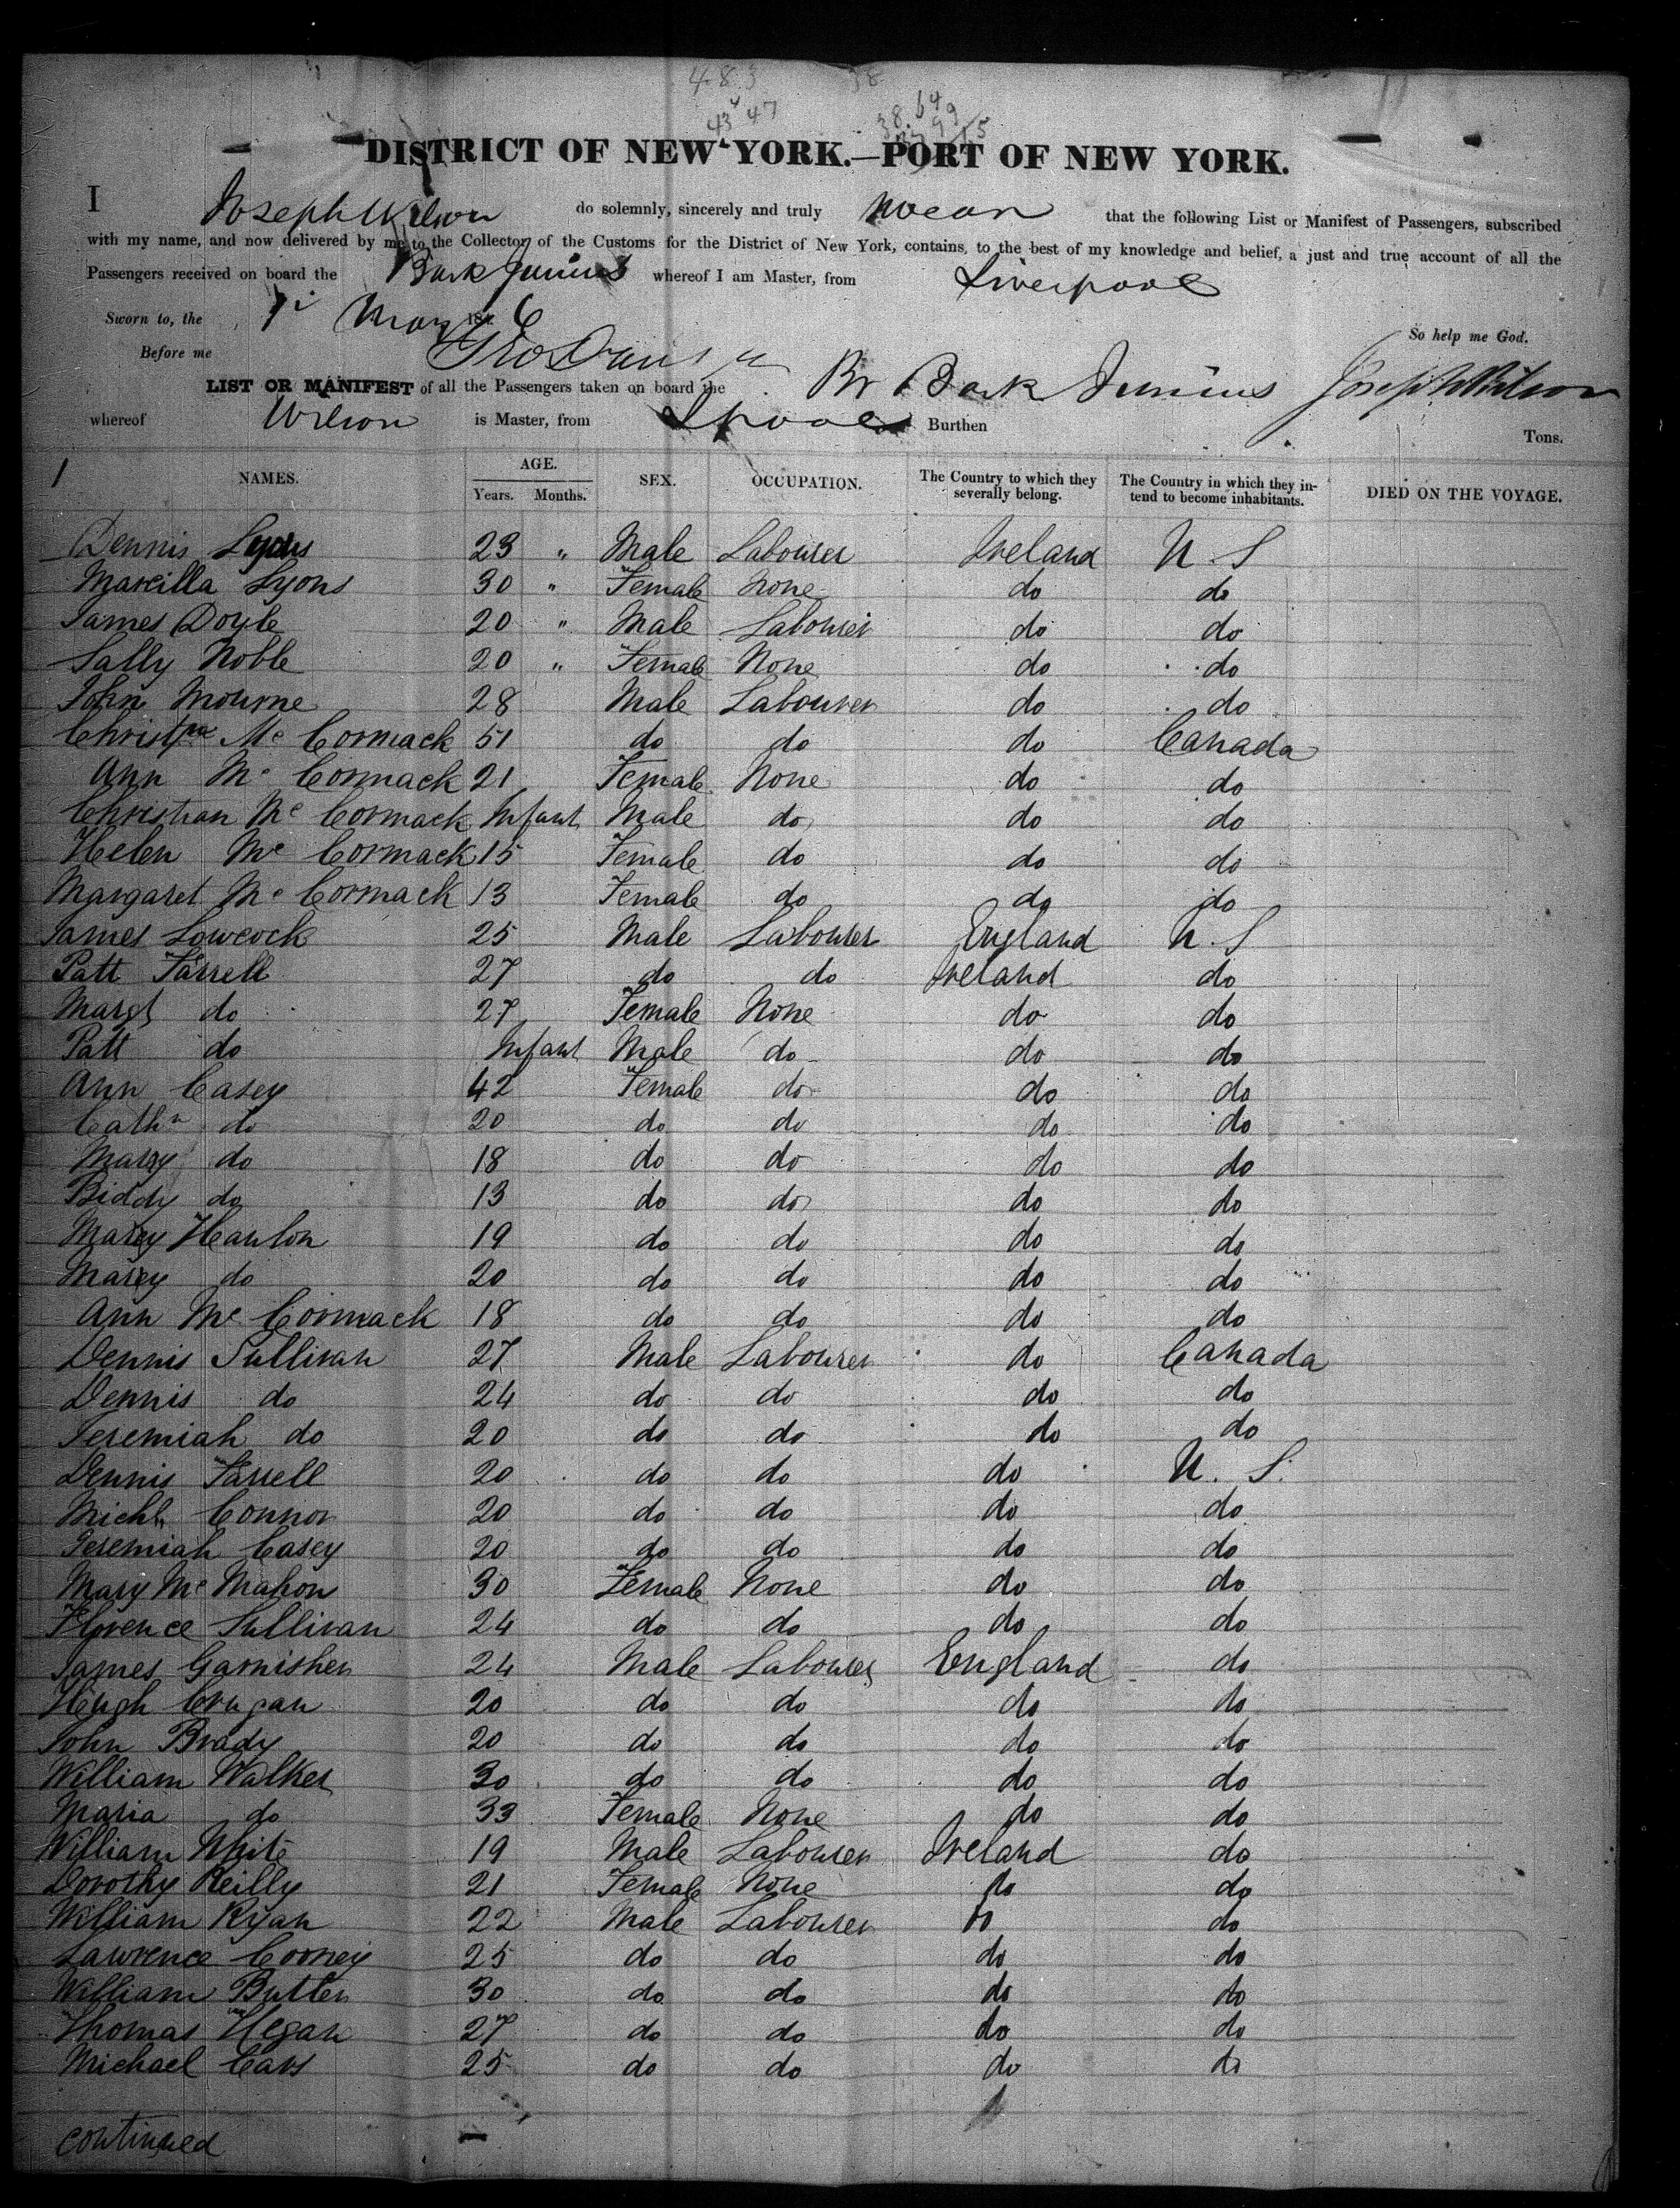 483
DISTRICT OF NEW YORK.—PORT OF NEW YORK.
I Joseph Wilson do solemnly, sincerely and truly swear that the following List or Manifest of Passengers, subscribed
with my name, and now delivered by me to the Collector of the Customs for the District of New York, contains, to the best of my knowledge and belief, a just and true account of all the
Passengers received on board the Bark Junius whereof I am Master, from Liverpool
Sworn to, the May 184 6 So help me God.
Before me
LIST OR MANIFEST of all the Passengers taken on board the Br Bark Junius Joseph Wilson
whereof Wilson is Master, from Lpool Burthen Tons.
1 NAMES. AGE. Years. Months. SEX. OCCUPATION. The Country to which they severally belong. The Country in which they intend to become inhabitants. DIED ON THE VOYAGE.
Dennis Lyons 23 " Male Labourer Ireland U. S
Marcilla Lyons 30 " Female None do do
James Doyle 20 " Male Labourer do do
Sally Noble 20 " Female None do do
John Mourne 28 Male Labourer do do
Mc Cormack 51 do do do Canada
Ann Mc Cormack 21 Female None do do
Christian Mc Cormack Infant Male do do do
Helen Mc Cormack 15 Female do do do
Margaret Mc Cormack 13 Female do do do
James Lowcock 25 Male Labourer England U. S
Patt Farrell 27 do do Ireland do
Margt do 27 Female None do do
Patt do Infant Male do do do
Ann Casey 42 Female do do do
Cathn do 20 do do do do
Mary do 18 do do do do
Biddy do 13 do do do do
Mary Hanlon 19 do do do do
Mary do 20 do do do do
Ann Mc Cormack 18 do do do do
Dennis Sullivan 27 Male Labourer do Canada
Dennis do 24 do do do do
Jeremiah do 20 do do do do
Dennis Farrell 20 do do do U. S.
Michl Connor 20 do do do do
Jeremiah Casey 20 do do do do
Mary Mc Mahon 30 Female None do do
Florence Sullivan 24 do do do do
James Garnisher 24 Male Labourer England do
Hugh Crugan 20 do do do do
John Brady 20 do do do do
William Walker 30 do do do do
Maria do 33 Female None do do
William White 19 Male Labourer Ireland do
Dorothy Reilly 21 Female None do do
William Ryan 22 Male Labourer do do
Lawrence Corney 25 do do do do
William Butler 30 do do do do
Thomas Hegan 27 do do do do
Michael 25 do do do do
continued